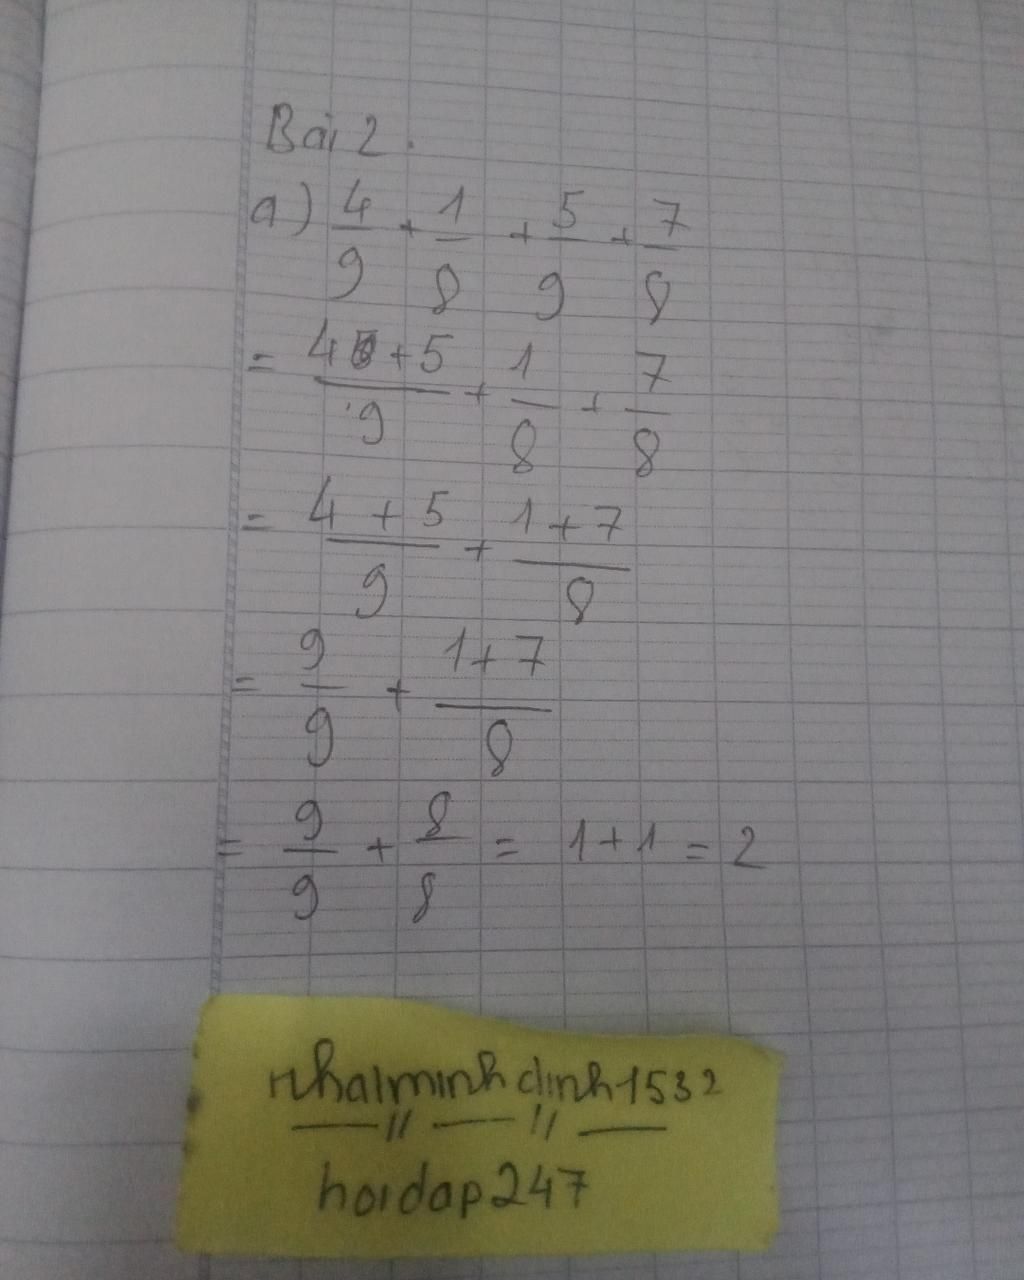 Bài 2.
a) 4/9 + 1/8 + 5/9 + 7/8
= (4 + 5)/9 + 1/8 + 7/8
= (4 + 5)/9 + (1 + 7)/8
= 9/9 + (1 + 7)/8
= 9/9 + 8/8 = 1 + 1 = 2
nhalminhdinh1532
hoidap247